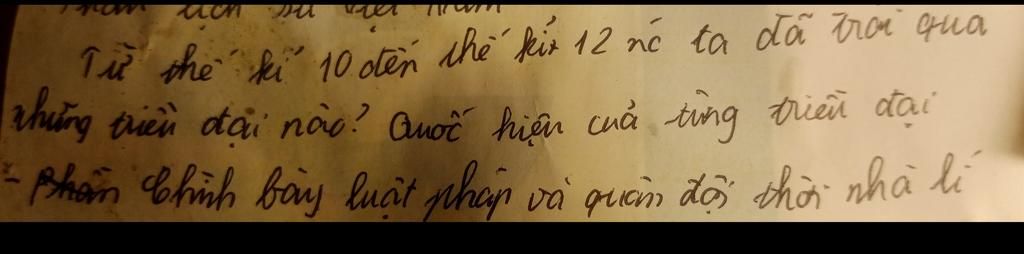 lịch sử việt nam
Từ thế kí 10 đến thế kỉ 12 nc ta đã trải qua
những triều đại nào? Quốc hiện cuả từng triều đại
- Chình bày luật pháp và quân đội thời nhà lí